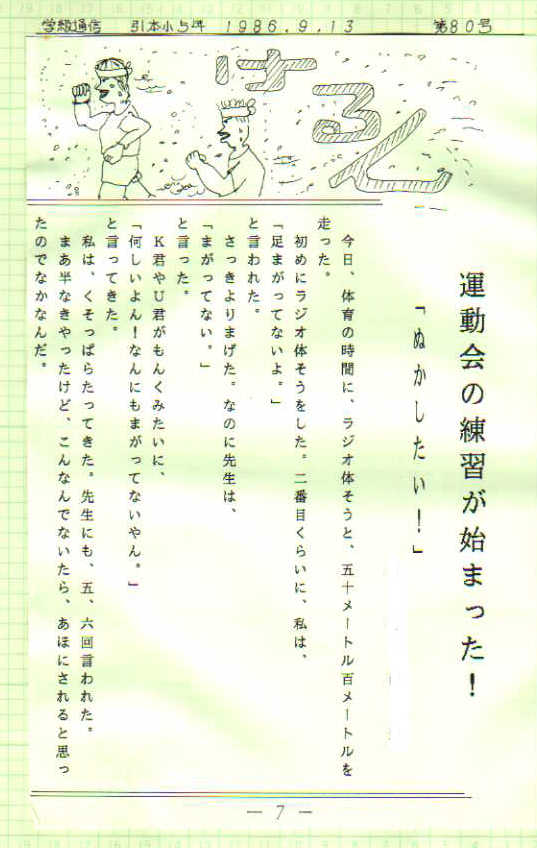 学級通信 引本小5年 1986.9.13 第80号
けるん
運動会の練習が始まった!
「ぬかしたい!」
今日、体育の時間に、ラジオ体そうと、五十メートル百メートルを
走った。
初めにラジオ体そうをした。二番目くらいに、私は、
「足まがってないよ。」
と言われた。
さっきよりまげた。なのに先生は、
「まがってない。」
と言った。
K君やU君がもんくみたいに、
「何しいよん!なんにもまがってないやん。」
と言ってきた。
私は、くそっぱらたってきた。先生にも、五、六回言われた。
まあ半なきやったけど、こんなんでないたら、あほにされると思っ
たのでなかなんだ。
— 7 —